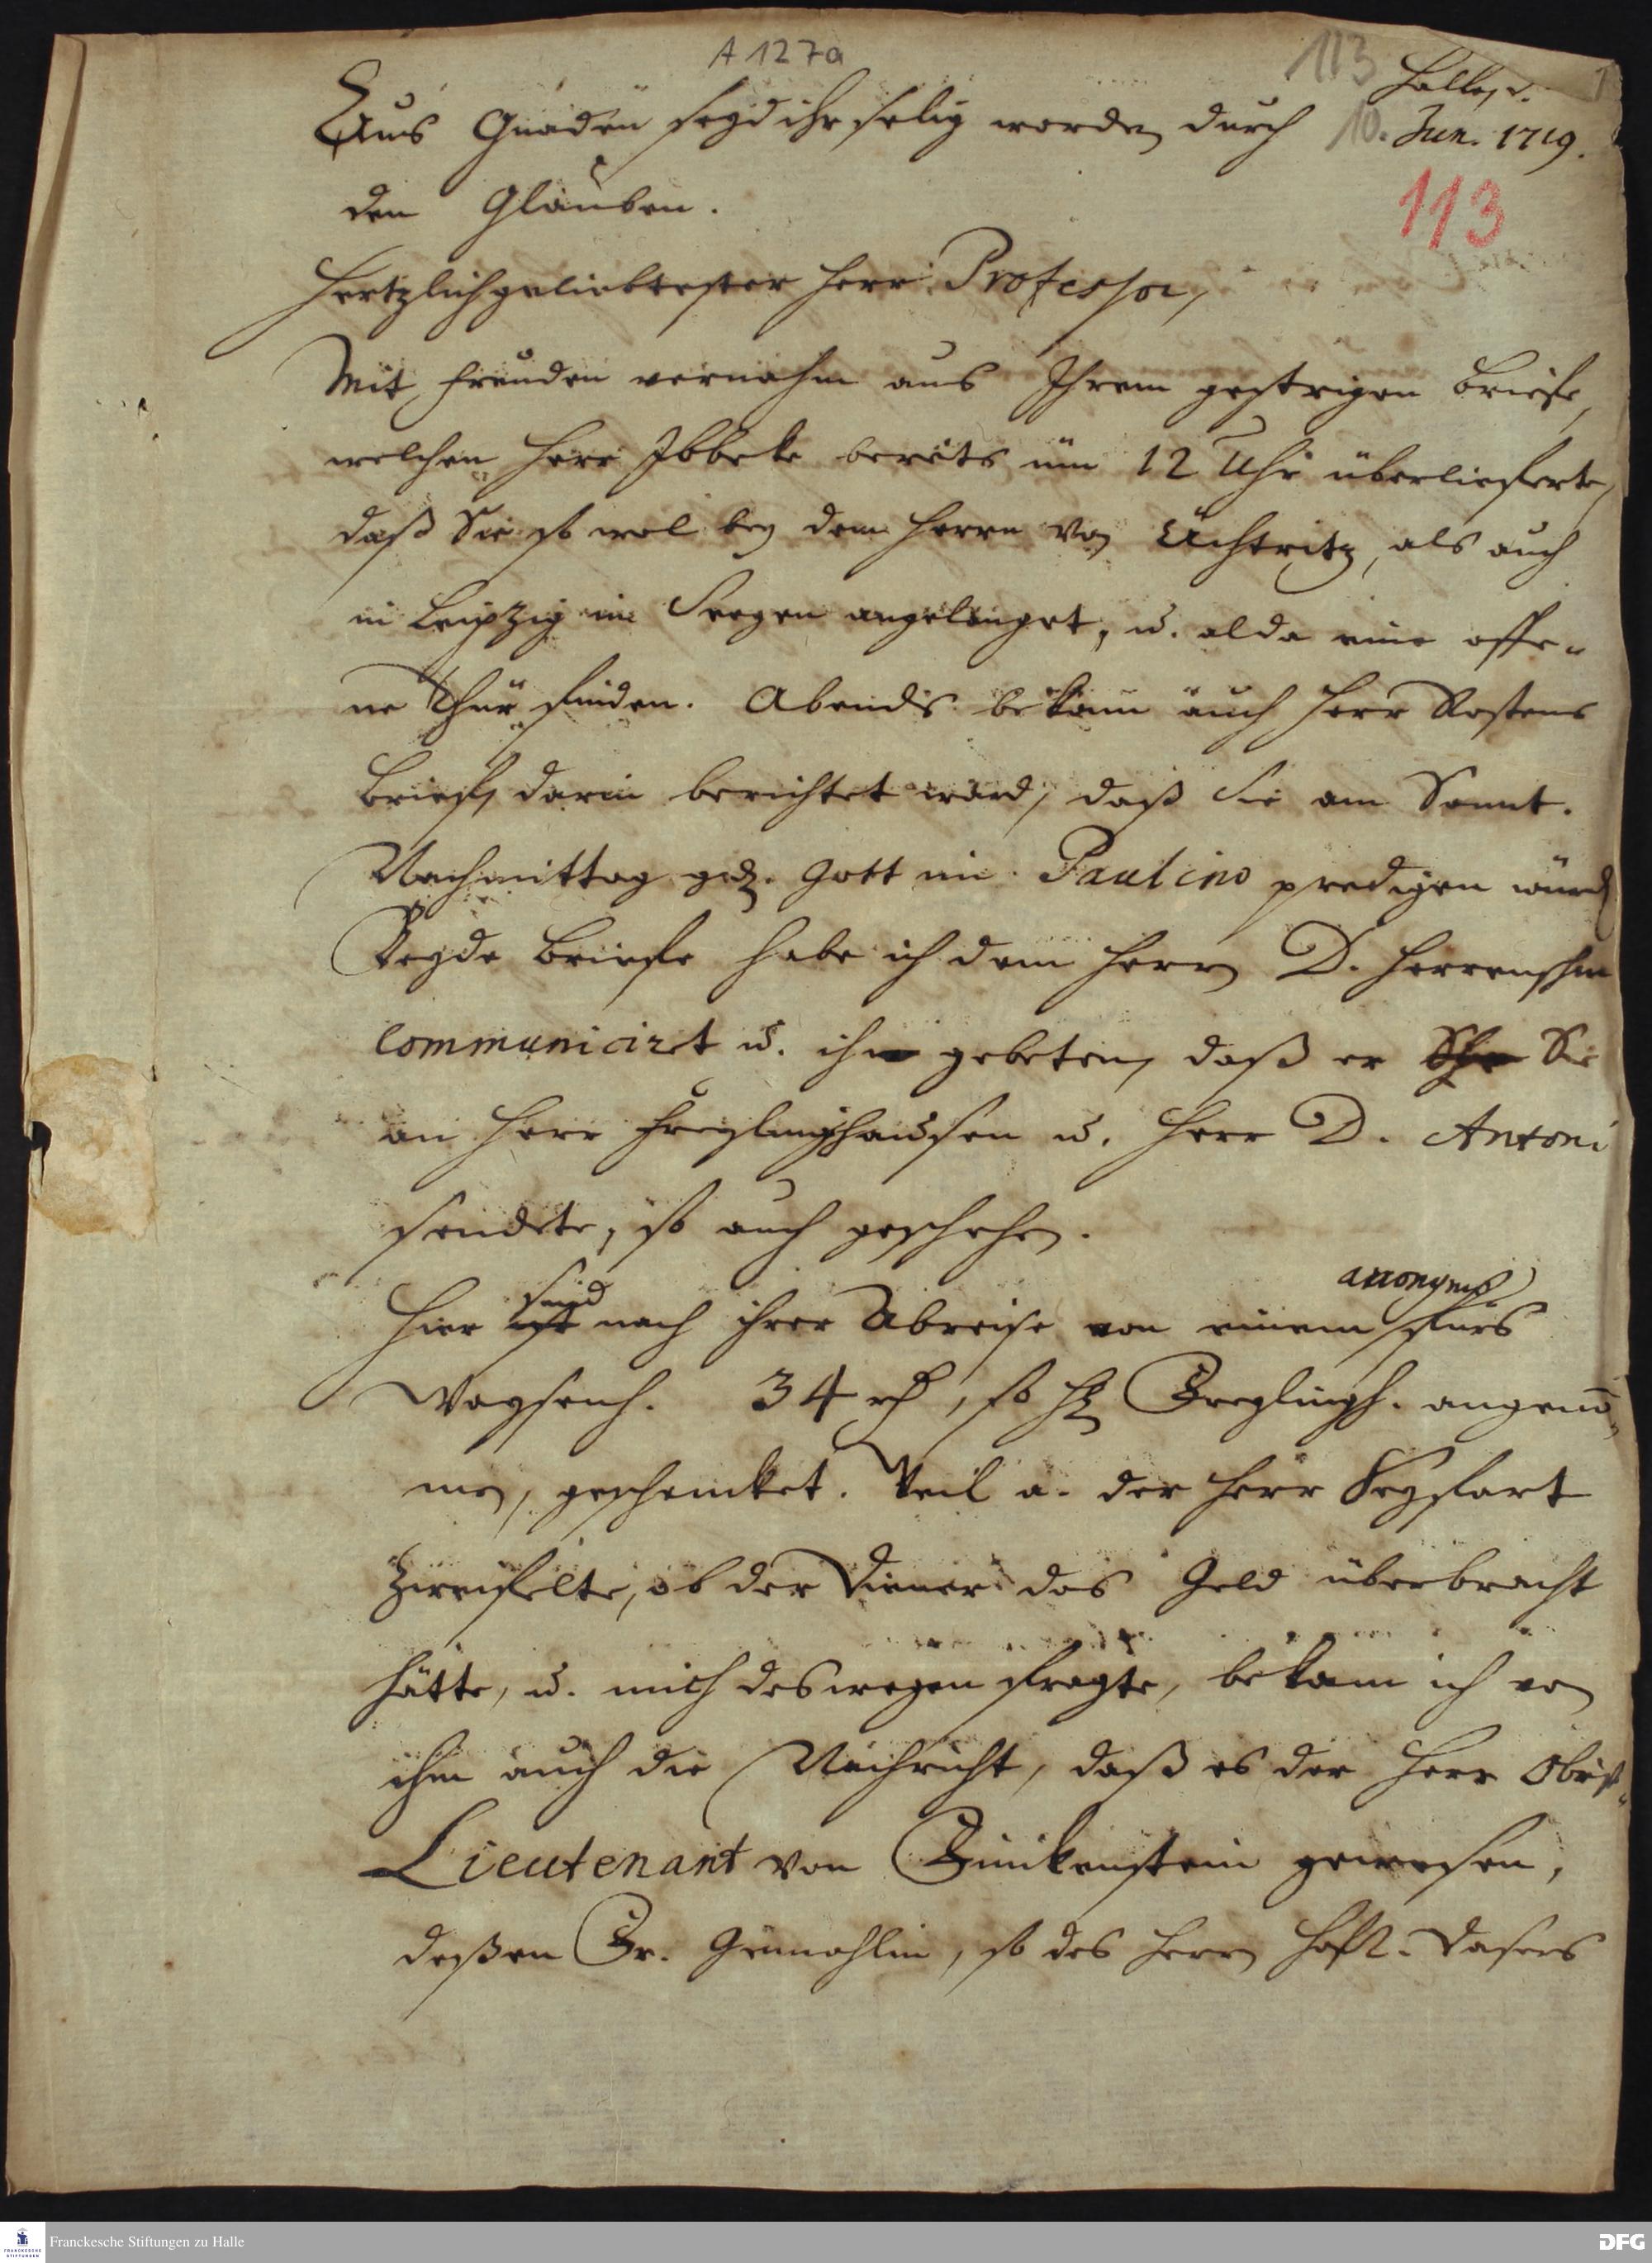 A 127a
113
1
Halle, d.
10. Jun. 1719.
113
Aus Gnaden seyd ihr selig worden durch
den Glauben.
Hertzlichgeliebtester Herr Professor,
Mit Freuden vernahm aus Ihrem gestrigen Briefe,
welchen Herr Ibbeke bereits um 12 Uhr überlieferte,
daß Sie so wol bey dem Herrn von Üchtritz, als auch
in Leipzig im Seegen angelanget, u. alda eine offe-
ne Thür finden. Abends bekam auch Herr Rostens
Brief, darin berichtet ward, daß Sie am Sonnt.
Nachmittag Gott im Paulino predigen würd
Beyde Briefe habe ich dem Herrn D. Herrenschm
communiciret u. ihn gebeten, daß er Sie
an Herr Freylinghausen u. Herr D. Antoni
sendete, so auch geschehen.
Hier sind nach ihrer Abreise von einem anonymo fürs
Waysenh. 34 rh, so H Freylingh. angenom
men, geschencket. Weil a. der Herr Seyfart
zweifelte, ob der Diener das Geld überbracht
hätte, u. mich deswegen fragte, bekam ich von
ihm auch die Nachricht, daß es der Herr Obrist-
Lieutenant von Finkenstein gewesen,
deßen Fr. Gemahlin, so des Herrn Hoft. Dasers
Franckesche Stiftungen zu Halle
FRANCKESCHE STIFTUNGEN
DFG